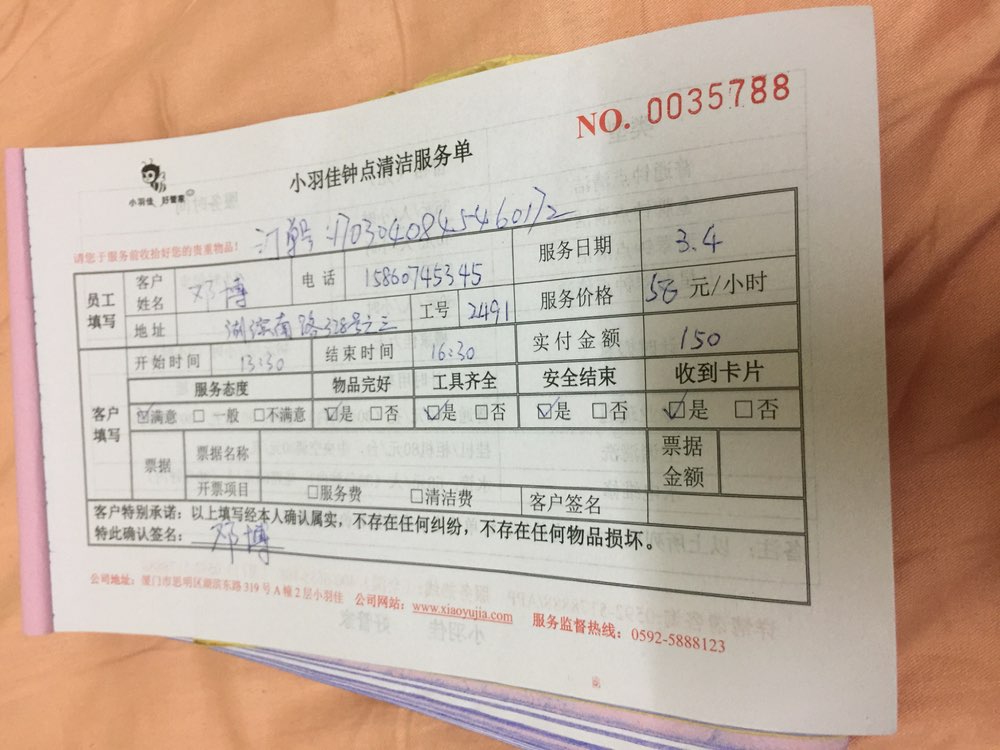 NO. 0035788
小羽佳 好管家
小羽佳钟点清洁服务单
请您于服务前收拾好您的贵重物品!
订单号:1703040845460172
员工填写 客户姓名 邓博 电话 15860745345 服务日期 3.4
地址 湖滨南路328号之三 工号 2491 服务价格 元/小时
开始时间 13:30 结束时间 16:30 实付金额 150
客户填写 服务态度 物品完好 工具齐全 安全结束 收到卡片
☑满意 □一般 □不满意 ☑是 □否 ☑是 □否 ☑是 □否 ☑是 □否
票据 票据名称 票据金额
开票项目 □服务费 □清洁费 客户签名
客户特别承诺:以上填写经本人确认属实,不存在任何纠纷,不存在任何物品损坏。
特此确认签名: 邓博
公司地址:厦门市思明区湖滨东路319号A幢2层小羽佳 公司网站:www.xiaoyujia.com 服务监督热线:0592-5888123